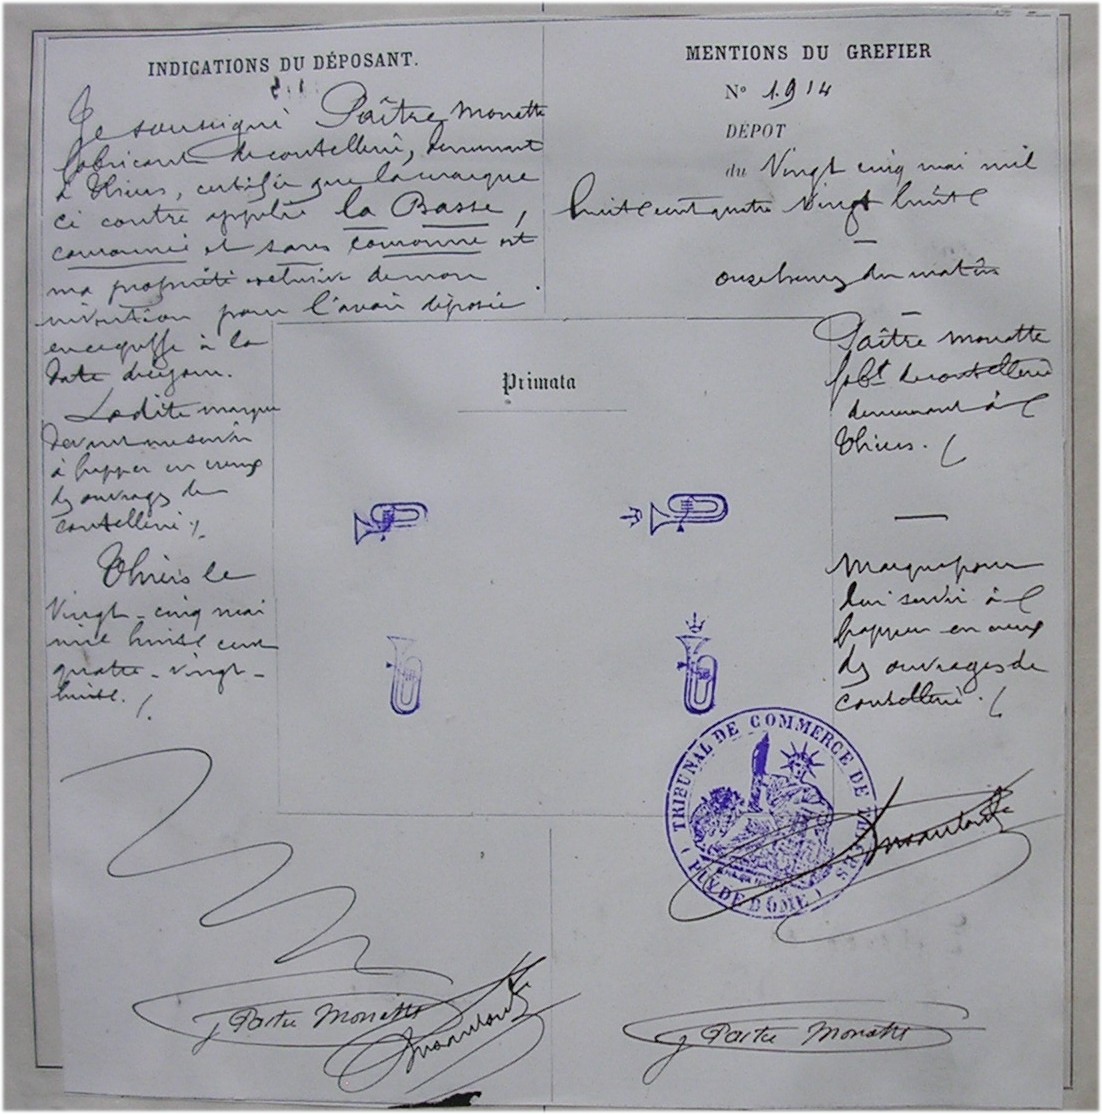 INDICATIONS DU DÉPOSANT.
Je soussigné Paître Monatte
fabricant de coutellerie, demeurant
à Thiers, certifie que la marque
ci contre appelée la Basse,
couronnée et sans couronne est
ma propriété exclusive de mon
invention pour l'avoir déposée
en ce greffe à la
date de ce jour.
Ladite marque
devant me servir
à frapper en creux
des ouvrages de
coutellerie
Thiers le
Vingt-cinq mai
mil huit cent
quatre-vingt-
huit.
MENTIONS DU GREFIER
N° 1914
DÉPOT
du Vingt cinq mai mil
huit cent quatre vingt huit
onze heures du matin
Paître Monatte
fabt de coutellerie
demeurant à
Thiers.
Marque pour
lui servir à
frapper en creux
des ouvrages de
coutellerie.
Primata
TRIBUNAL DE COMMERCE DE THIERS
(PUY DE DÔME)
J Paitre Monatte
J Paitre Monatte